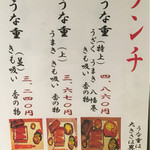 ランチ
うな重(特上)
うざく うまき 八幡巻
きも吸い 香の物
四、八六〇円
うな重(上)
うまき きも吸い 香の物
三、六七〇円
うな重(並)
きも吸い 香の物
三、二四〇円
うな重は